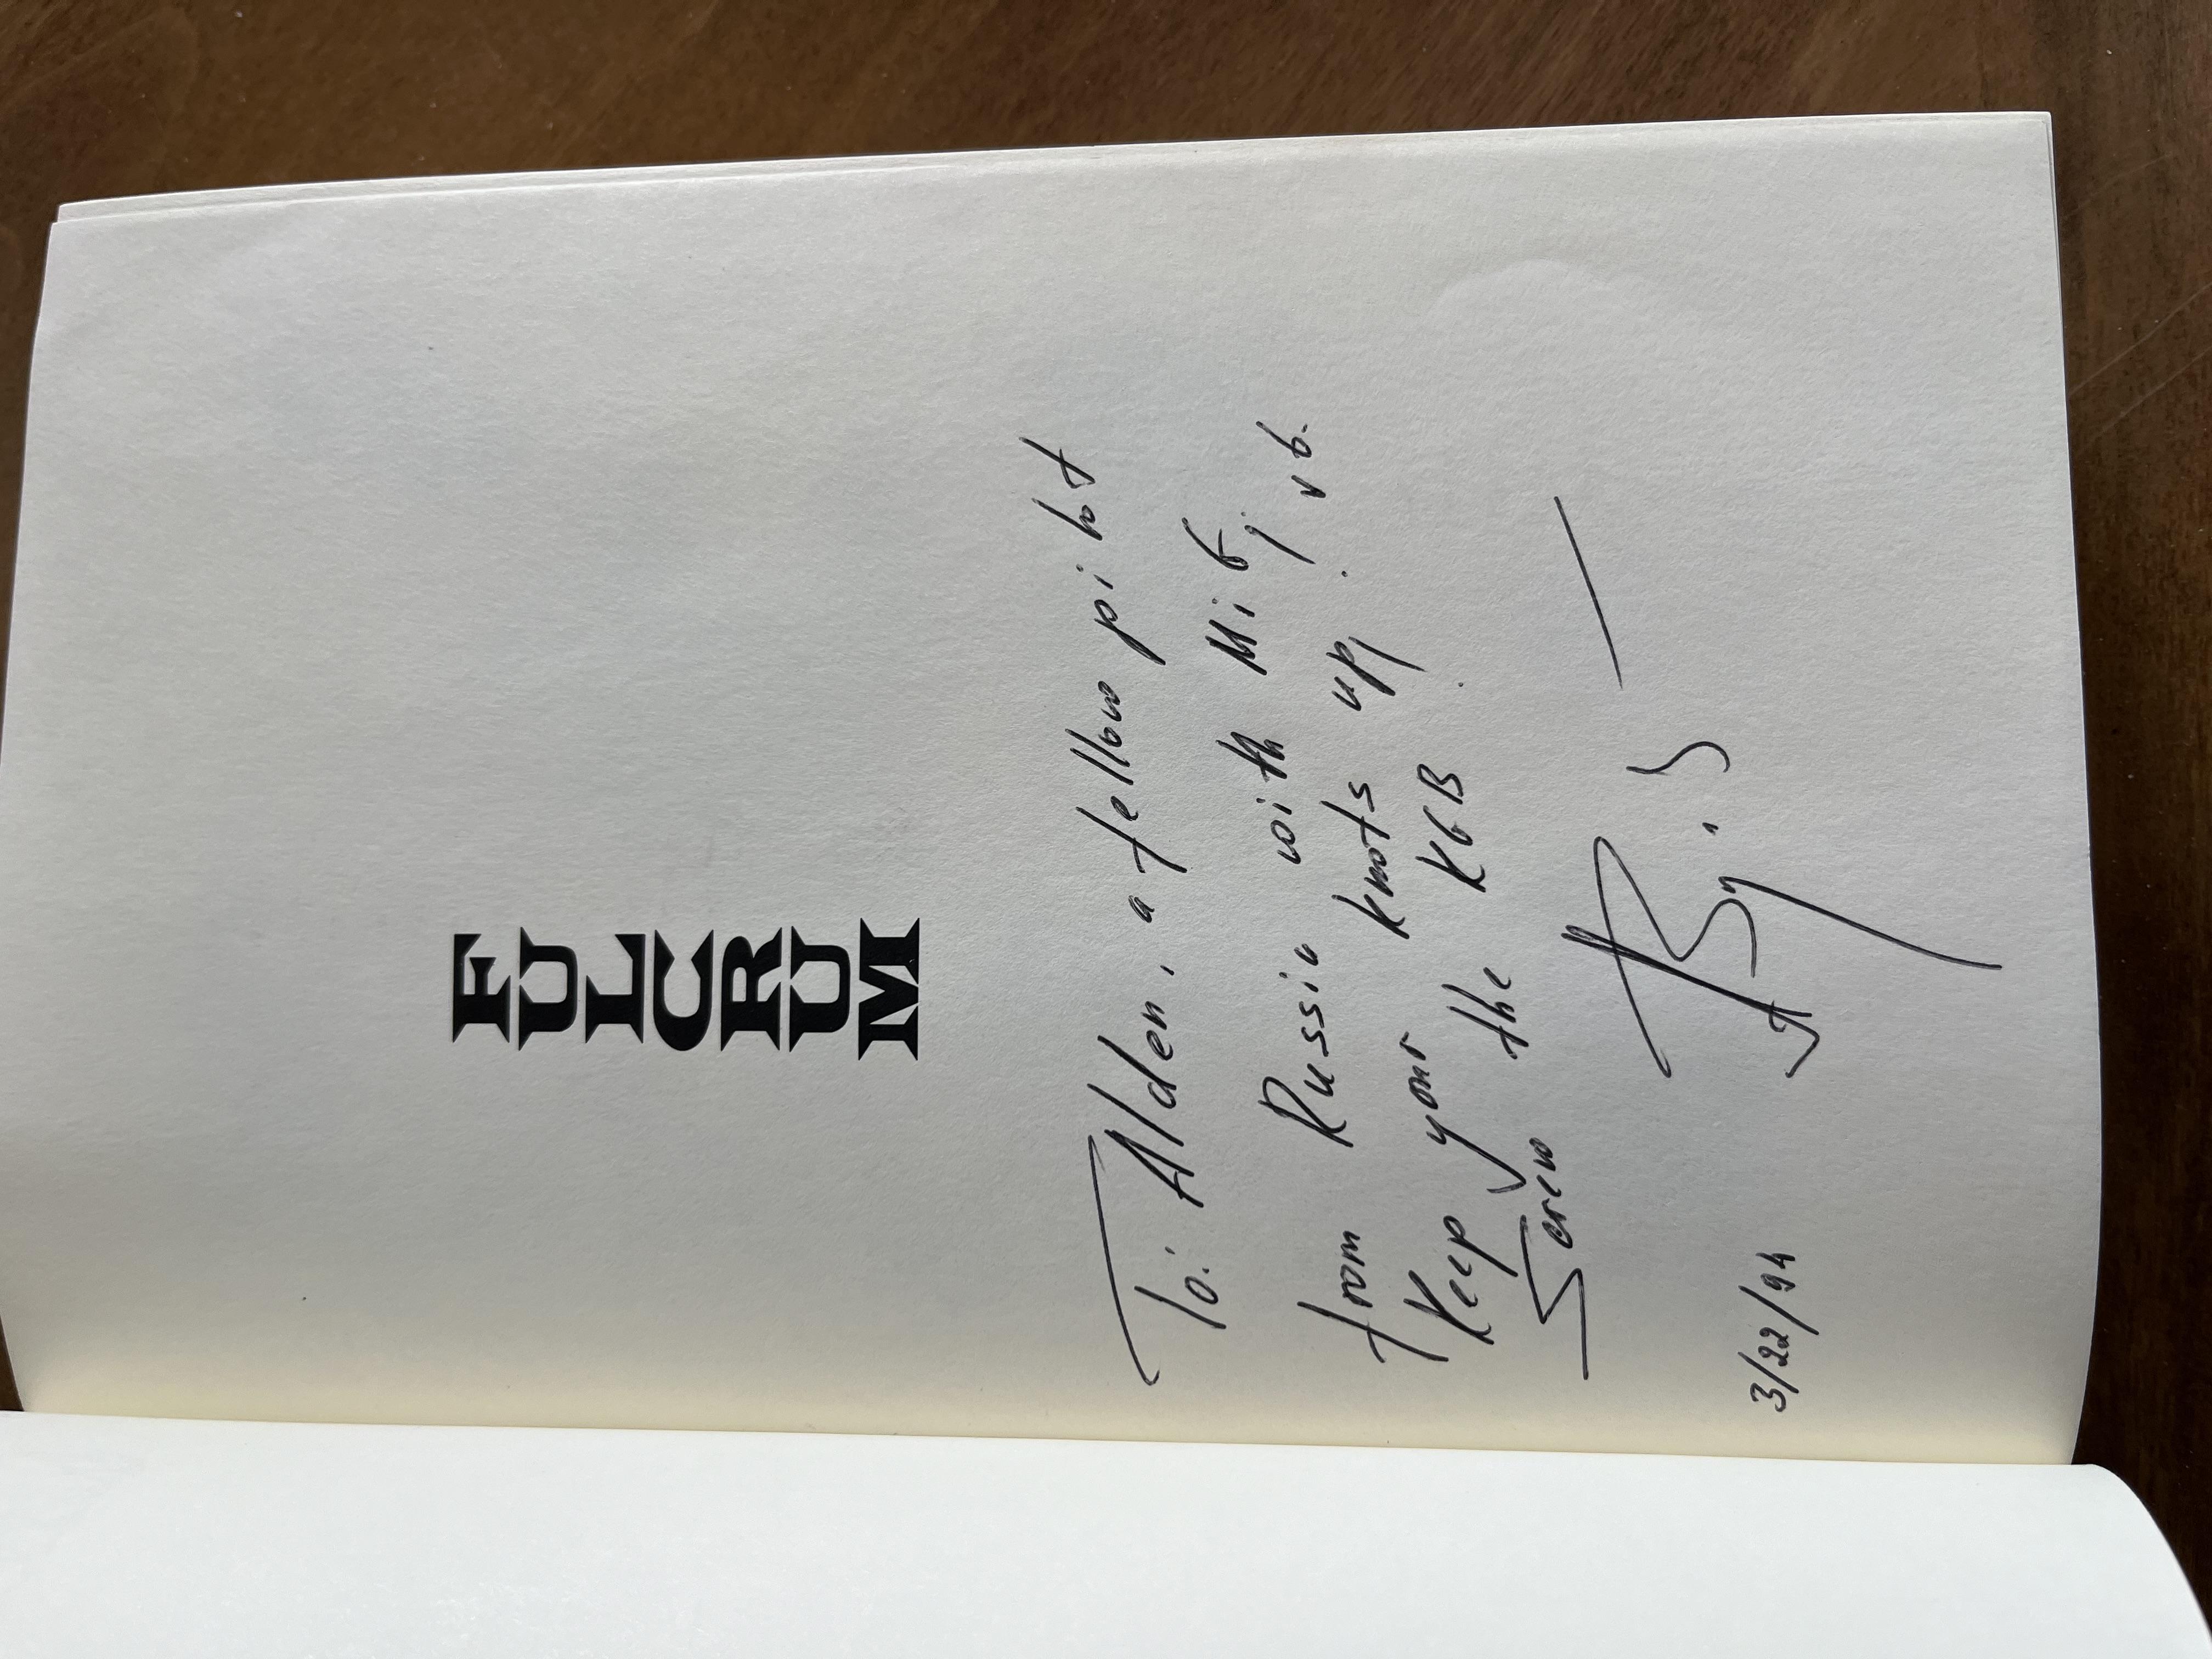 FULCRUM
To: Alden, a fellow pilot
from Russia with MiG
Keep your knots up!
Screw the KGB!
3/22/94